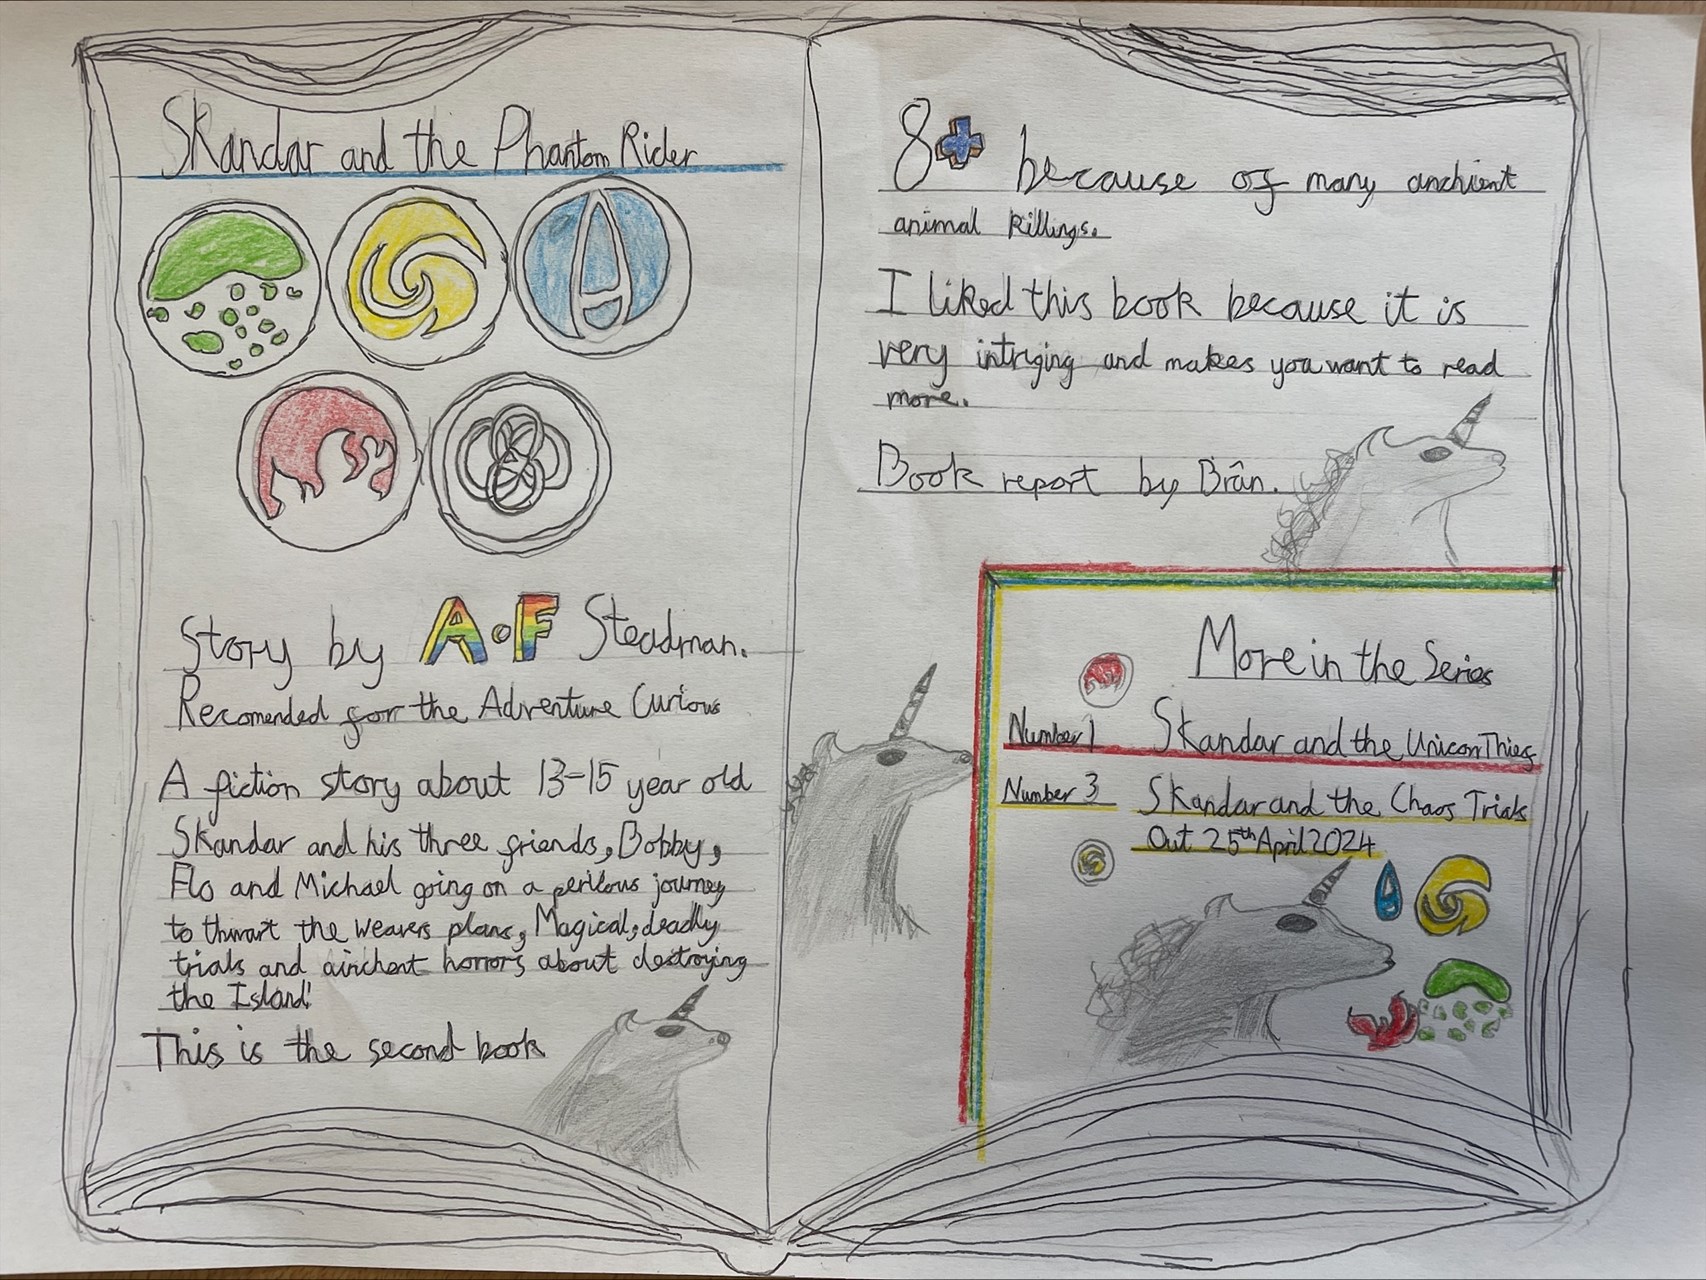 Skandar and the Phantom Rider
Story by A.F Steadman.
Recomended for the Adventure Curious
A fiction story about 13-15 year old
Skandar and his three friends, Bobby,
Flo and Michael going on a perilous journey
to thwart the weavers plans, Magical, deadly
trials and ainchent horrors about destroying
the Island!
This is the second book
8+ because of many anchient
animal killings.
I liked this book because it is
very intriging and makes you want to read
more.
Book report by Brân.
More in the Series
Number 1 Skandar and the Unicorn Thief
Number 3 Skandar and the Chaos Trials
Out 25th April 2024